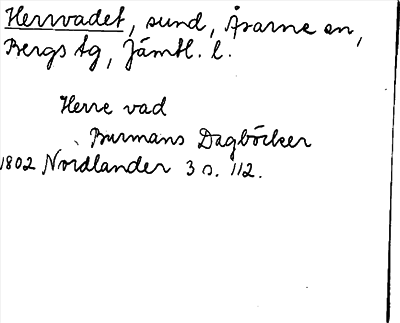 Herrvadet, sund, Åsarne sn,
Bergs tg, Jämtl. l.
Herre vad
Burmans Dagböcker
1802 Nordlander 3 s. 112.